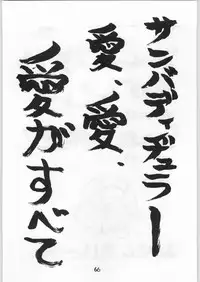 サンバディヂュラー
愛、愛、
愛がすべて
66